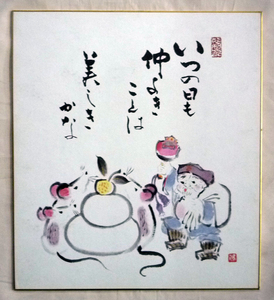 いつの日も
仲よき
ことは
美しき
かなよ